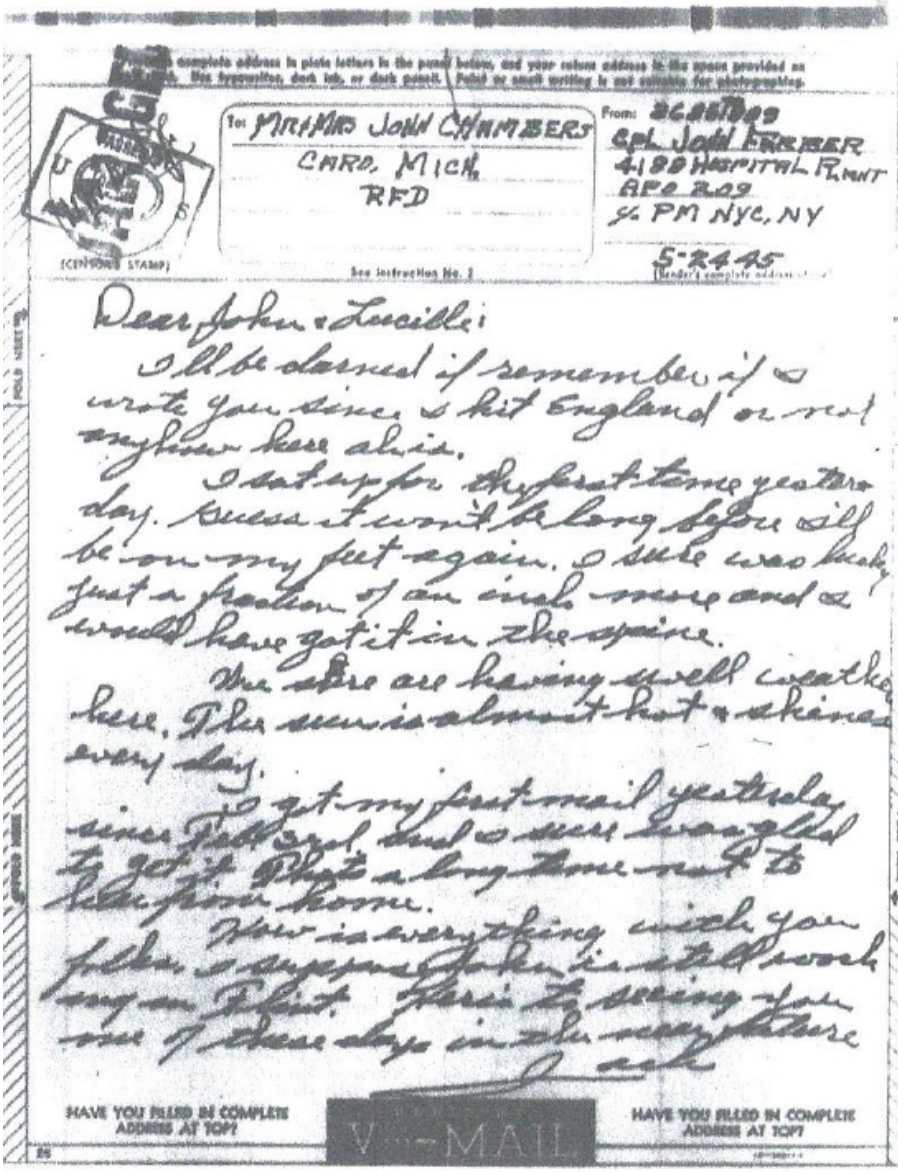 complete address in plain letters in the panel below, and your return address in the space provided on
Use typewriter, dark ink, or dark pencil. Faint or small writing is not suitable for photographing.
To: MR & MRS JOHN CHAMBERS
CARO, MICH.
RFD
From:
CPL JOHN
4188 HOSPITAL PLANT
APO 209
% PM NYC, NY
5-24-45
(CENSOR'S STAMP)
See Instruction No. 2
(Sender's complete address
Dear John & Lucille:
I'll be darned if remember if I
wrote you since I hit England or not
anyhow here 'tis.
I sat up for the first time yester
day. Guess it won't be long before I'll
be on my feet again. I sure was lucky
just a fraction of an inch more and I
would have got it in the spine.
We sure are having swell weather
here. The sun is almost hot & shines
every day.
I got my first mail yesterday
since Feb 3rd, and I sure was glad
to get it. That's a long time not to
hear from home.
How is everything with you
folks. I suppose John is still work
ing in Flint. Here's to seeing you
one of these days in the near future
Jack
HAVE YOU FILLED IN COMPLETE
ADDRESS AT TOP?
V-MAIL
HAVE YOU FILLED IN COMPLETE
ADDRESS AT TOP?